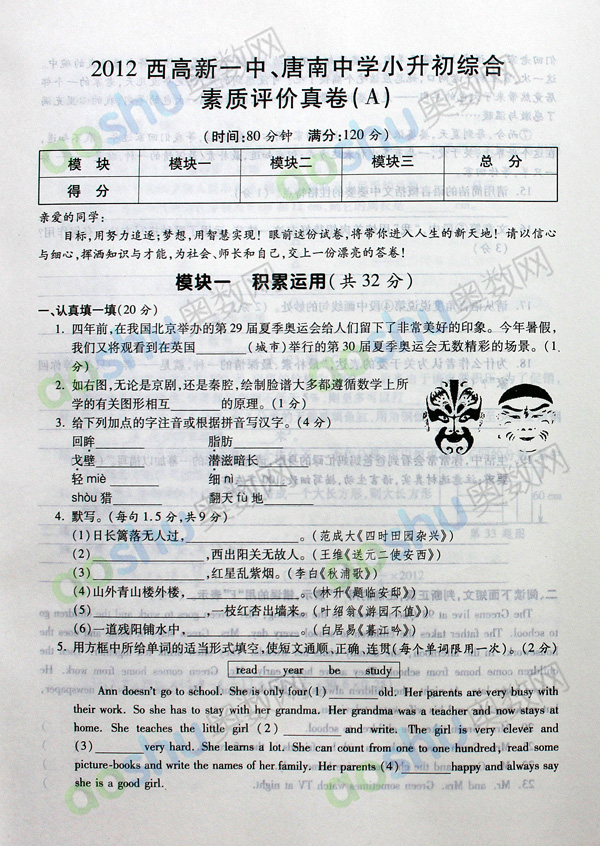 2012 西高新一中、唐南中学小升初综合
素质评价真卷(A)
(时间:80 分钟 满分:120 分)
模 块 模块一 模块二 模块三 总 分
得 分
亲爱的同学:
目标,用努力追逐;梦想,用智慧实现!眼前这份试卷,将带你进入人生的新天地!请以信心
与细心,挥洒知识与才能,为社会、师长和自己,交上一份漂亮的答卷!
模块一 积累运用(共 32 分)
一、认真填一填(20 分)
1. 四年前,在我国北京举办的第 29 届夏季奥运会给人们留下了非常美好的印象。今年暑假,
我们又将观看到在英国________(城市)举行的第 30 届夏季奥运会无数精彩的场景。(1
分)
2. 如右图,无论是京剧,还是秦腔,绘制脸谱大多都遵循数学上所
学的有关图形相互________的原理。(1 分)
3. 给下列加点的字注音或根据拼音写汉字。(4 分)
回眸________ 脂肪________
戈壁________ 潜滋暗长________
轻 miè________ 细 nì________
shòu 猎________ 翻天 fù 地________
4. 默写。(每句 1.5 分,共 9 分)
(1)日长篱落无人过,________________。(范成大《四时田园杂兴》)
(2)________________,西出阳关无故人。(王维《送元二使安西》)
(3)________________,红星乱紫烟。(李白《秋浦歌》)
(4)山外青山楼外楼,________________。(林升《题临安邸》)
(5)________________,一枝红杏出墙来。(叶绍翁《游园不值》)
(6)一道残阳铺水中,________________。(白居易《暮江吟》)
5. 用方框中所给单词的适当形式填空,使短文通顺、正确、连贯(每个单词限用一次)。(2 分)
read year be study
Ann doesn't go to school. She is only four(1) ________ old. Her parents are very busy with
their work. So she has to stay with her grandma. Her grandma was a teacher and now stays at
home. She teaches the little girl (2) ________ and write. The girl is very clever and
(3)________ very hard. She learns a lot. She can count from one to one hundred, read some
picture-books and write the names of her family. Her parents (4) ________happy and always say
she is a good girl.
aoshu奥数网